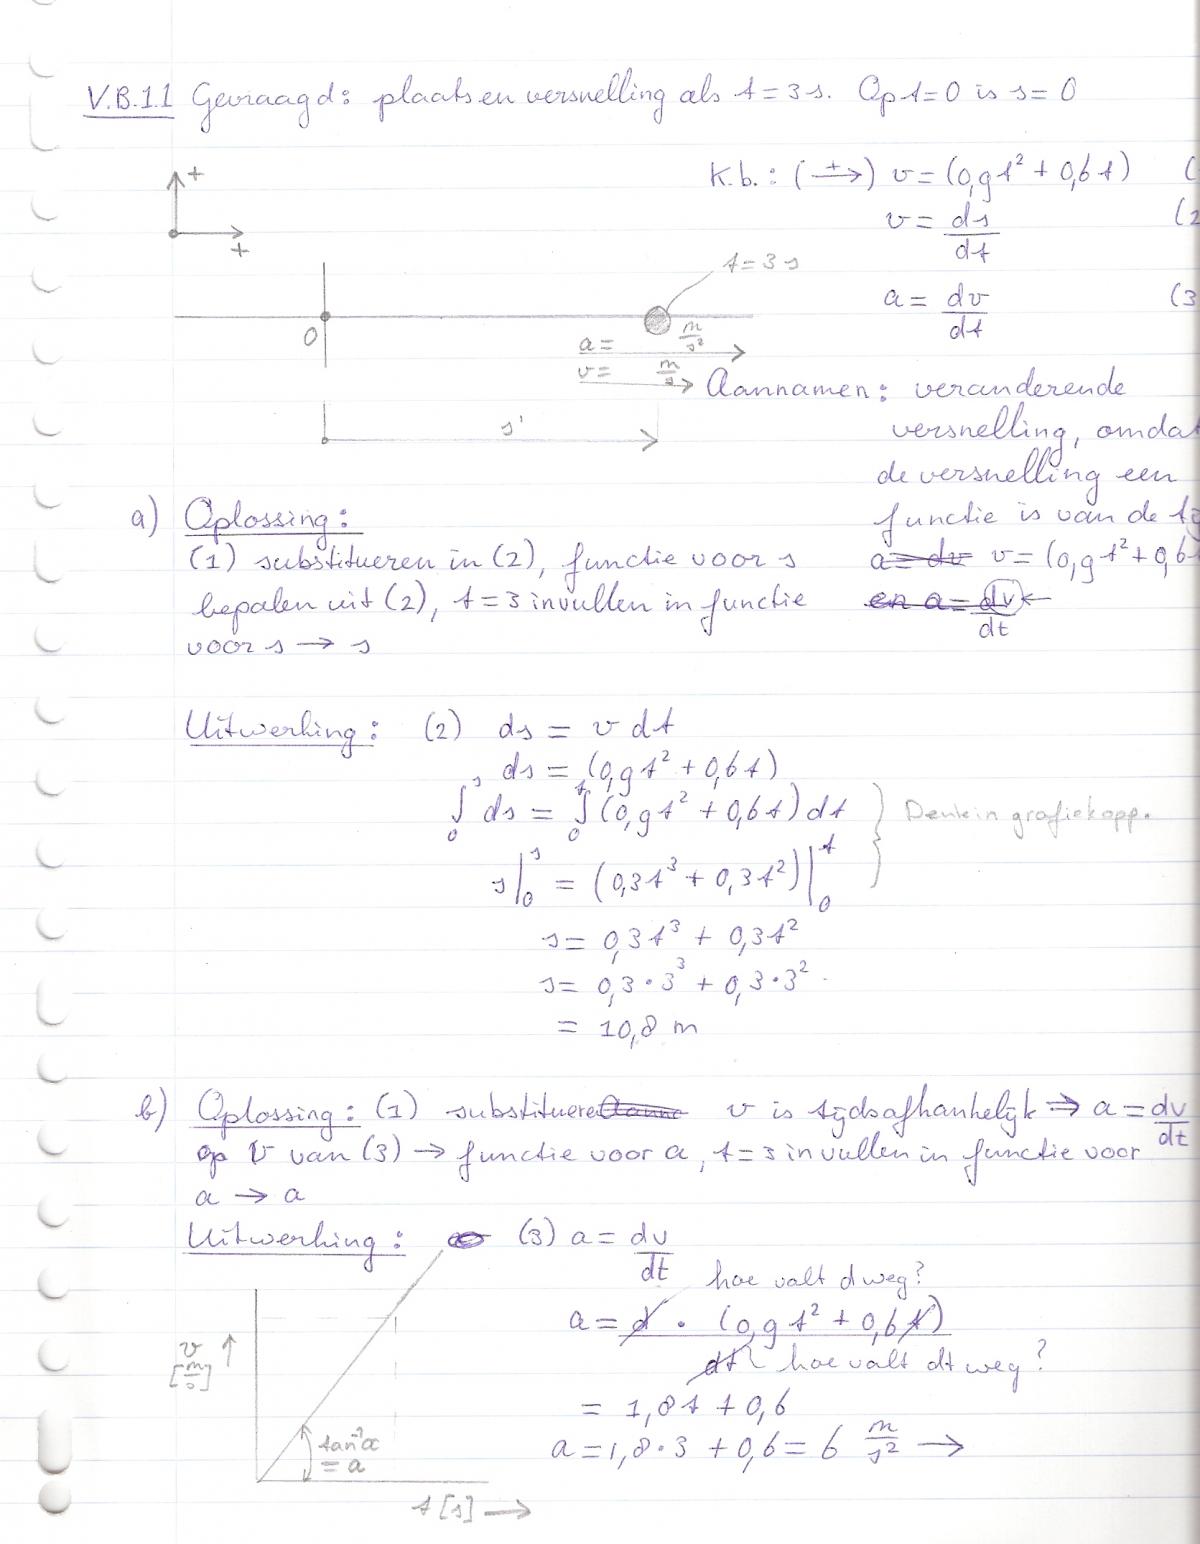 V.B.1.1 Gevraagd: plaats en versnelling als t = 3 s. Op t=0 is s=0
+
+
K.b.: (+→) v = (0,9t² + 0,6t) (
v = ds/dt (2
a = dv/dt (3
t = 3 s
0
a = m/s²
v = m/s
s'
Aannamen: veranderende
versnelling, omdat
de versnelling een
functie is van de
a = dv v = (0,9t² + 0,6
en a = dv/dt ←
a) Oplossing:
(1) substitueren in (2), functie voor s
bepalen uit (2), t = 3 invullen in functie
voor s → s
Uitwerking: (2) ds = v dt
ds = (0,9t² + 0,6t)
∫₀ˢ ds = ∫₀ᵗ (0,9t² + 0,6t) dt } Denk in grafiekopp.
s|₀ˢ = (0,3t³ + 0,3t²)|₀ᵗ
s = 0,3t³ + 0,3t²
s = 0,3 · 3³ + 0,3 · 3²
= 10,8 m
b) Oplossing: (1) substitueren v is tijdsafhankelijk ⇒ a = dv/dt
op v van (3) → functie voor a, t = 3 invullen in functie voor
a → a
Uitwerking: (3) a = dv/dt
hoe valt d weg?
a = d · (0,9t² + 0,6t)
dt hoe valt dt weg?
= 1,8t + 0,6
a = 1,8 · 3 + 0,6 = 6 m/s² →
v ↑
[m/s]
tan⁻¹α
= a
t [s] →